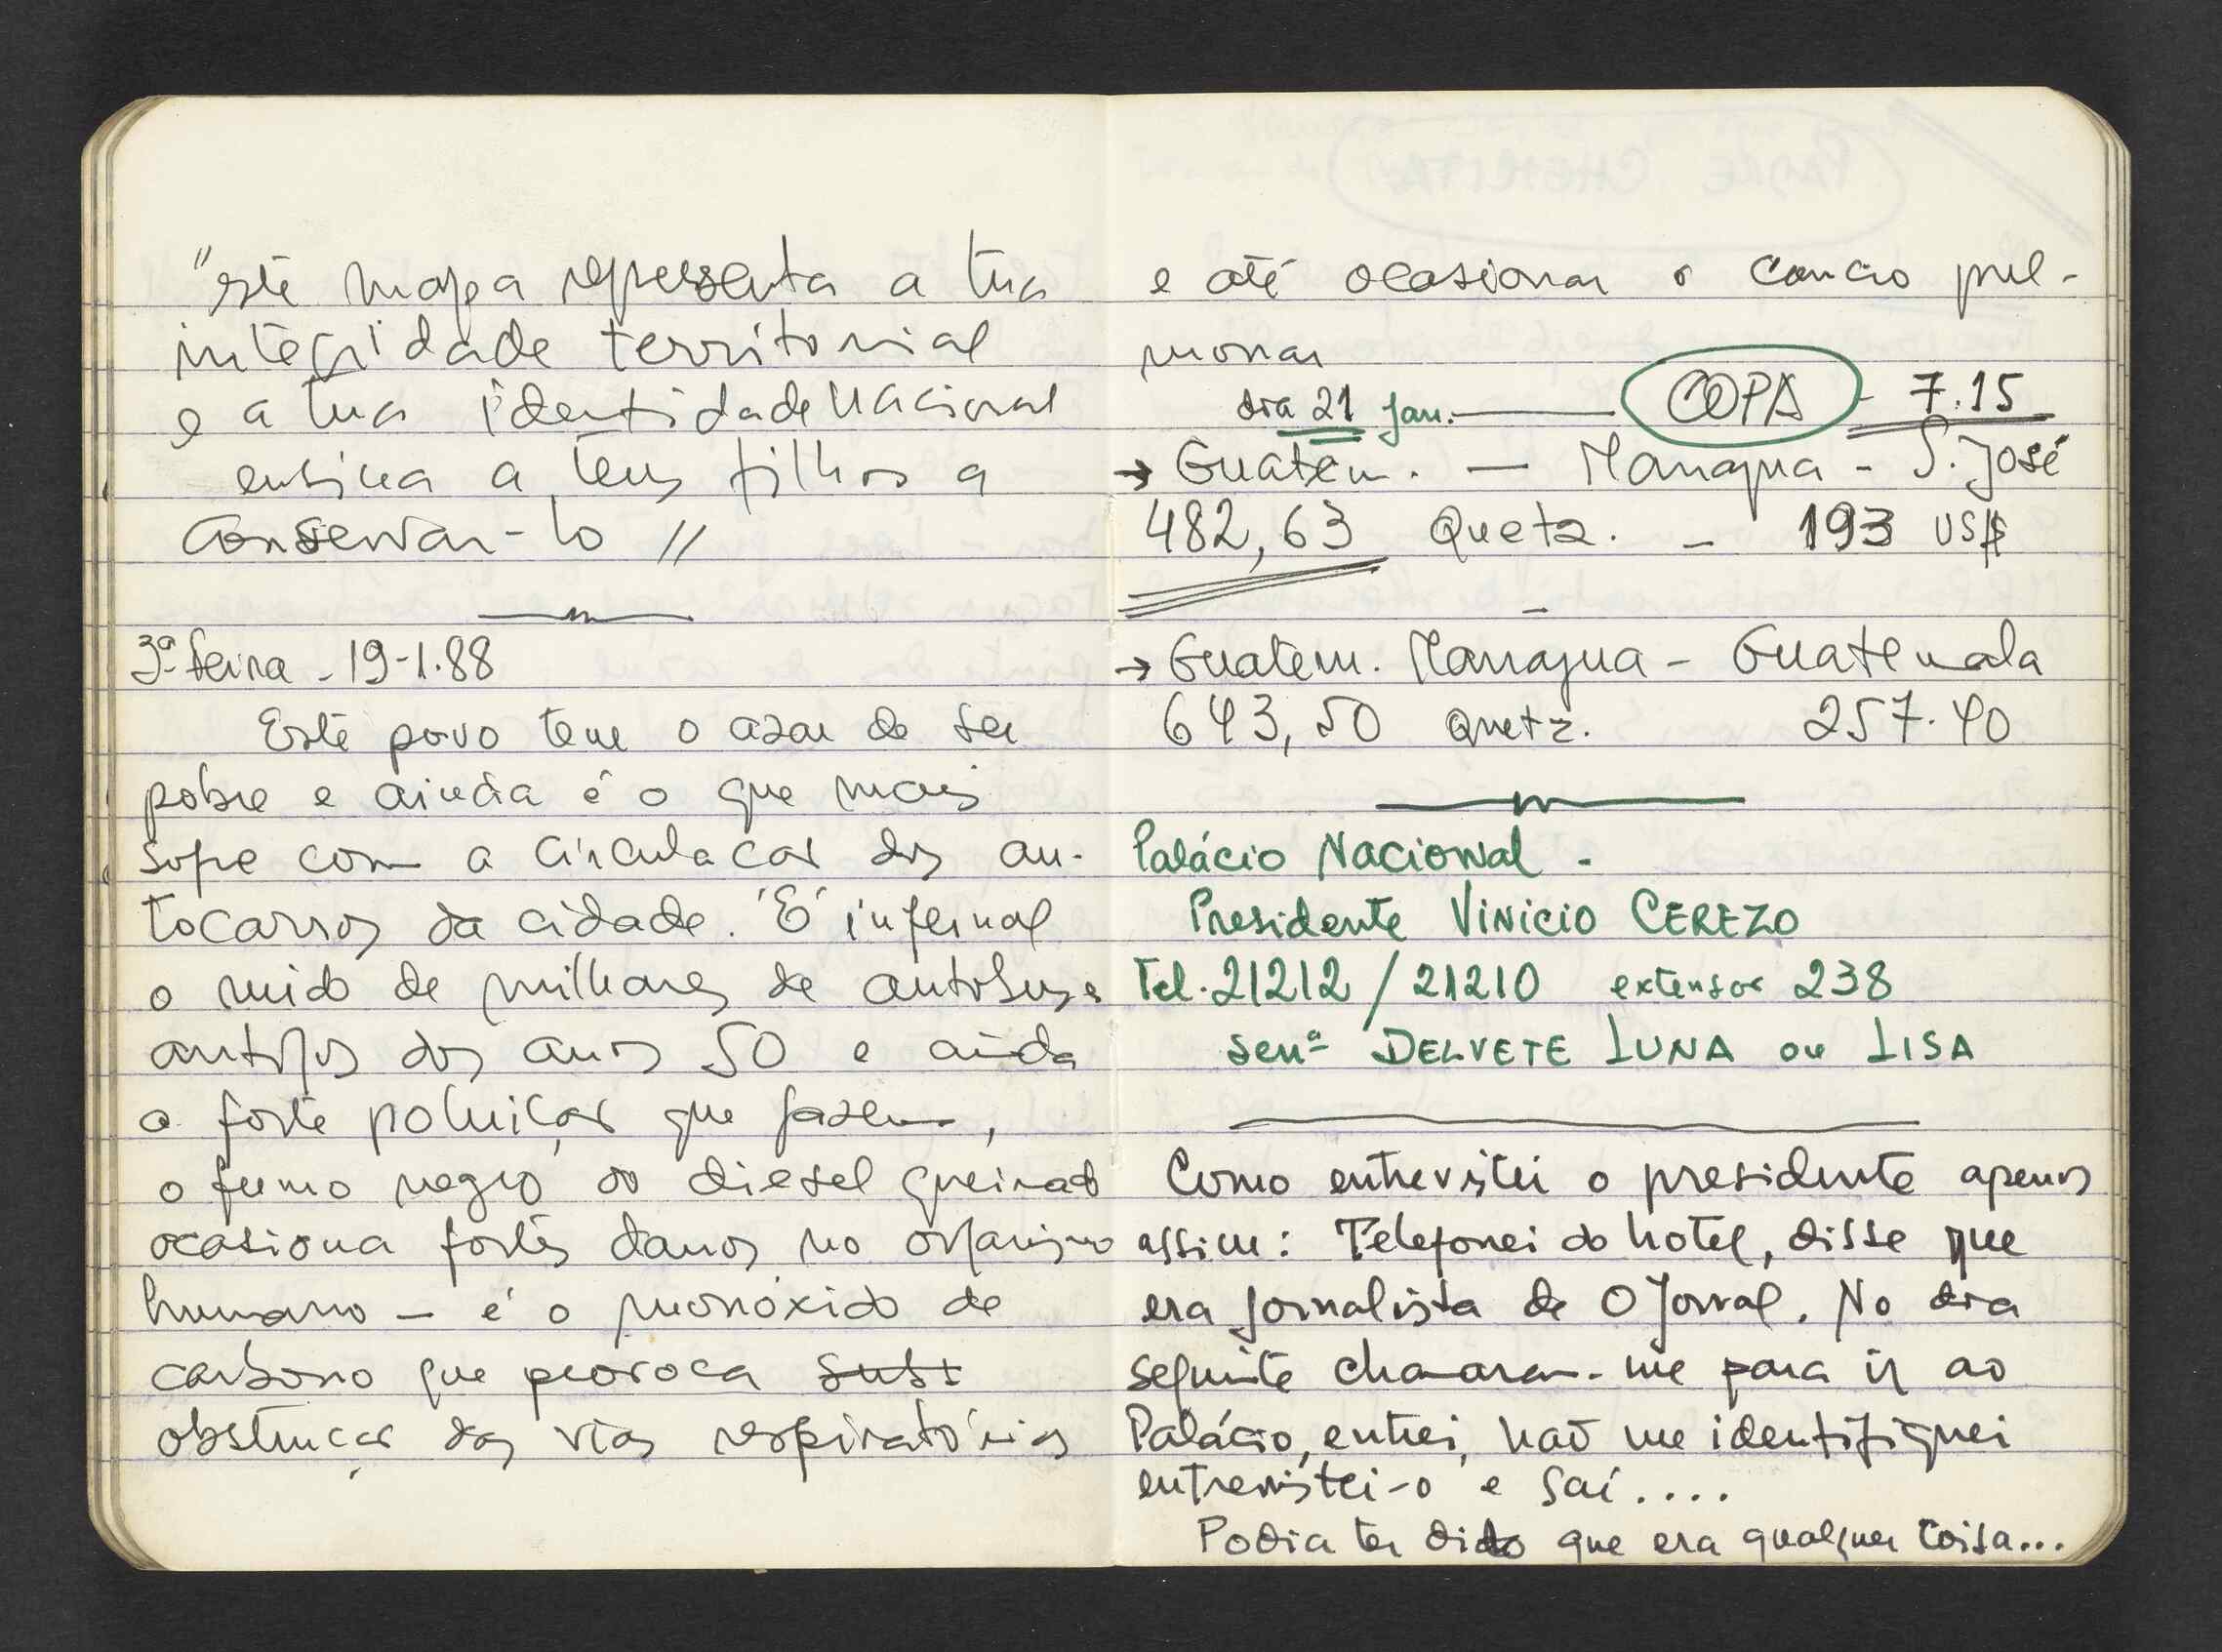 "este mapa representa a tua
integridade territorial
e a tua identidade nacional
ensina a teus filhos a
conservar-lo"
3ª feira - 19-1.88
Este povo tem o azar de ser
pobre e ainda é o que mais
sofre com a circulação dos au-
tocarros da cidade. É infernal
o ruido de milhares de autobuses
antigos dos anos 50 e ainda
a forte poluição que fazem,
o fumo negro do diesel queimado
ocasiona fortes danos no organismo
humano - é o monóxido de
carbono que provoca
obstrução das vias respiratórias
e até ocasionar o cancro pul-
monar
dia 21 jan. — COPA - 7.15
→ Guatem. — Managua - S. José
482,63 Quetz. - 193 US$
→ Guatem. Managua - Guatemala
643,50 Quetz. 257.40
Palácio Nacional -
Presidente VINICIO CEREZO
Tel. 21212 / 21210 extensão 238
senª DELVETE LUNA ou LISA
Como entrevistei o presidente apenas
assim: Telefonei do hotel, disse que
era jornalista de O Jornal. No dia
seguinte chamaram-me para ir ao
Palácio, entrei, não me identifiquei
entrevistei-o e saí....
Podia ter dito que era qualquer coisa...